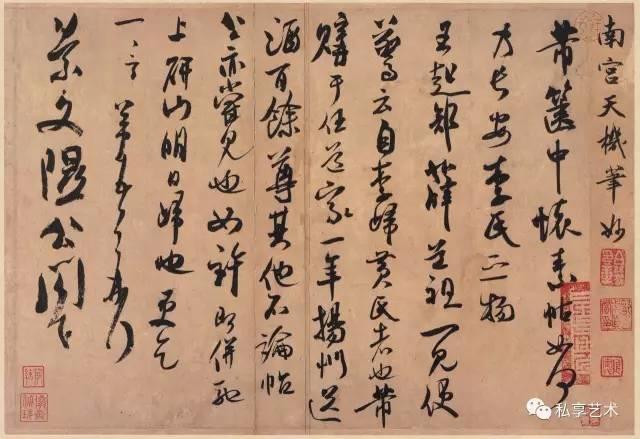 南宮天機筆妙
芾篋中懷素帖如何
乃長安李氏之物
王起部薛道祖一見便
驚云自李歸黃氏者也芾
購于任道家一年揚州送
酒百餘尊其他不論帖
公亦嘗見也如許即併馳
上研山明日歸也更乞
一言芾頓首再拜
景文隰公閣下
私享艺术